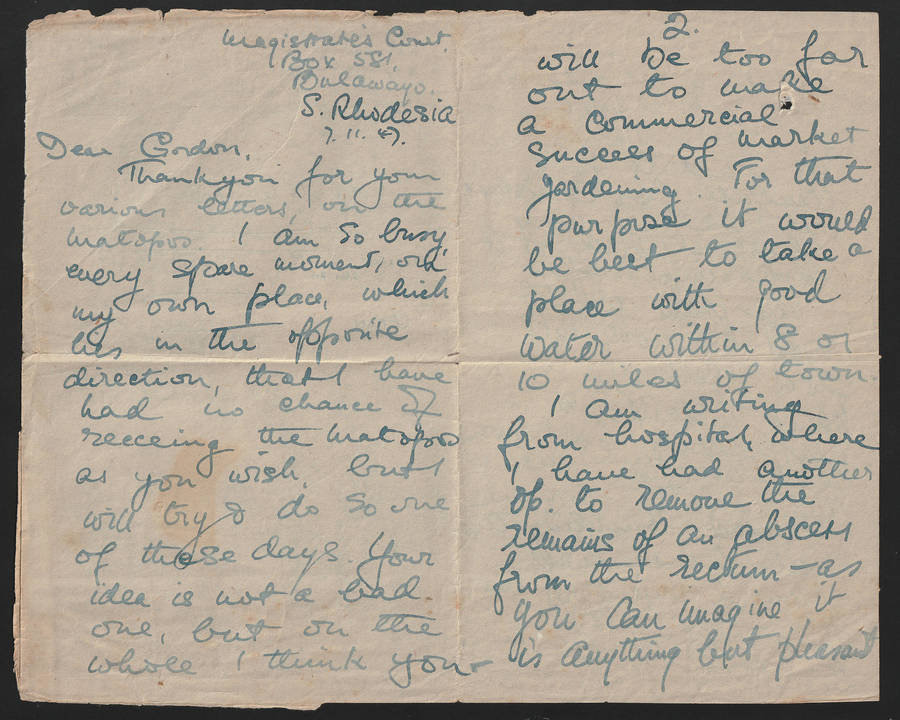 Magistrate's Court.
Box 581,
Bulawayo.
S. Rhodesia
7. 11. 47.
Dear Gordon,
Thankyou for your
various letters, on the
Matopos. I am so busy,
every spare moment, on
my own place, which
lies in the opposite
direction, that I have
had no chance of
recceing the Matopos
as you wish, but I
will try & do so one
of these days. Your
idea is not a bad
one, but on the
whole I think you
2.
will be too far
out to make
a commercial
success of market
gardening. For that
purpose it would
be best to take a
place with good
water within 8 or
10 miles of town.
I am writing
from hospital, where
I have had another
op. to remove the
remains of an abscess
from the rectum – as
you can imagine it
is anything but pleasant